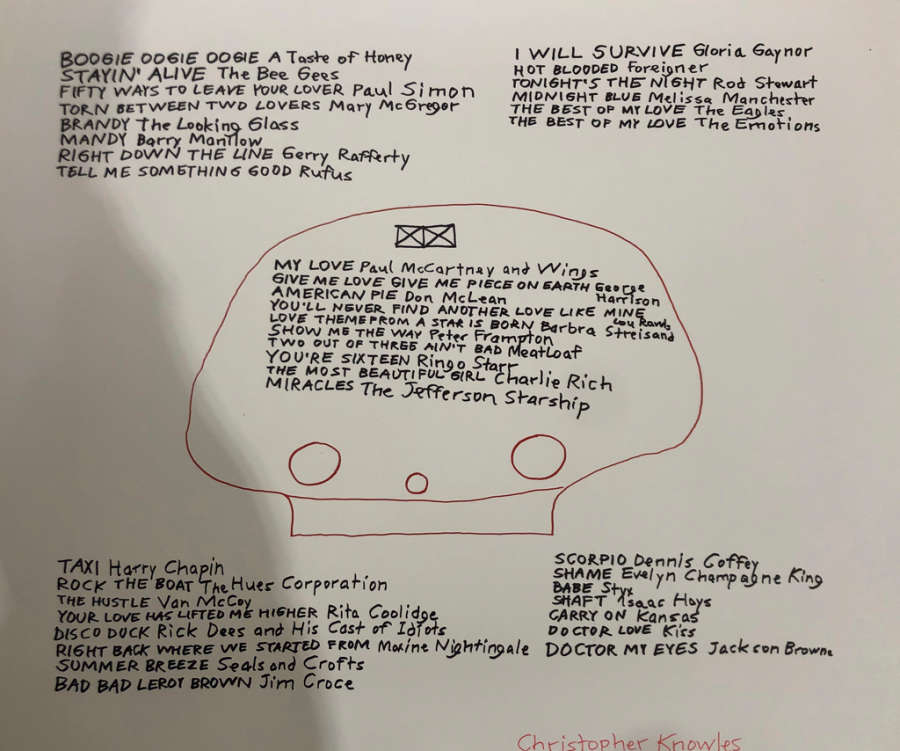 BOOGIE OOGIE OOGIE A Taste of Honey
STAYIN' ALIVE The Bee Gees
FIFTY WAYS TO LEAVE YOUR LOVER Paul Simon
TORN BETWEEN TWO LOVERS Mary McGregor
BRANDY The Looking Glass
MANDY Barry Manilow
RIGHT DOWN THE LINE Gerry Rafferty
TELL ME SOMETHING GOOD Rufus
I WILL SURVIVE Gloria Gaynor
HOT BLOODED Foreigner
TONIGHT'S THE NIGHT Rod Stewart
MIDNIGHT BLUE Melissa Manchester
THE BEST OF MY LOVE The Eagles
THE BEST OF MY LOVE The Emotions
MY LOVE Paul McCartney and Wings
GIVE ME LOVE GIVE ME PIECE ON EARTH George
Harrison
AMERICAN PIE Don McLean
YOU'LL NEVER FIND ANOTHER LOVE LIKE MINE
Lou Rawls
LOVE THEME FROM A STAR IS BORN Barbra Streisand
SHOW ME THE WAY Peter Frampton
TWO OUT OF THREE AIN'T BAD MeatLoaf
YOU'RE SIXTEEN Ringo Starr
THE MOST BEAUTIFUL GIRL Charlie Rich
MIRACLES The Jefferson Starship
TAXI Harry Chapin
ROCK THE BOAT The Hues Corporation
THE HUSTLE Van McCoy
YOUR LOVE HAS LIFTED ME HIGHER Rita Coolidge
DISCO DUCK Rick Dees and His Cast of Idiots
RIGHT BACK WHERE WE STARTED FROM Maxine Nightingale
SUMMER BREEZE Seals and Crofts
BAD BAD LEROY BROWN Jim Croce
SCORPIO Dennis Coffey
SHAME Evelyn Champagne King
BABE Styx
SHAFT Isaac Hays
CARRY ON Kansas
DOCTOR LOVE Kiss
DOCTOR MY EYES Jackson Browne
Christopher Knowles